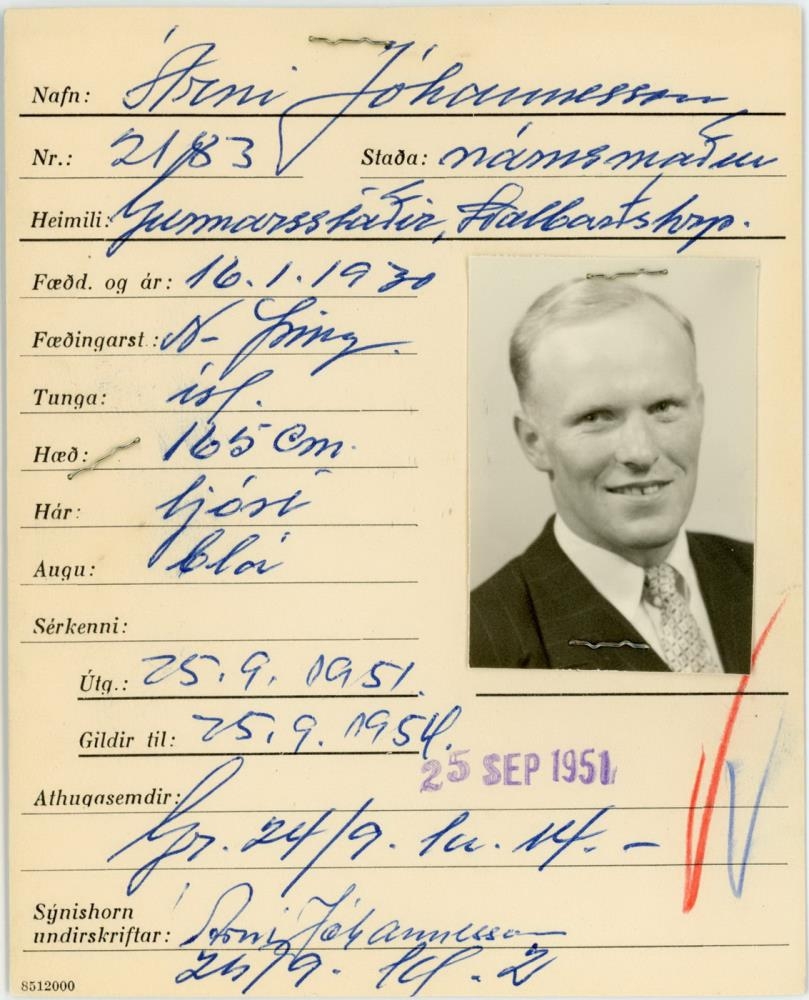 Nafn: Árni Jóhannesson
Nr.: 2183 Staða: námsmaður
Heimili: Gunnarsstaðir, Svalbarðshrp.
Fædd. og ár: 16.1.1930
Fæðingarst.: N-Þing.
Tunga: ísl.
Hæð: 165 cm.
Hár: ljóst
Augu: blá
Sérkenni:
Útg.: 25.9.1951.
Gildir til: 25.9.1954.
25 SEP 1951
Athugasemdir:
Gr. 24/9. kr. 14.-
Sýnishorn
undirskriftar: Árni Jóhannesson
9. kl. 2
8512000